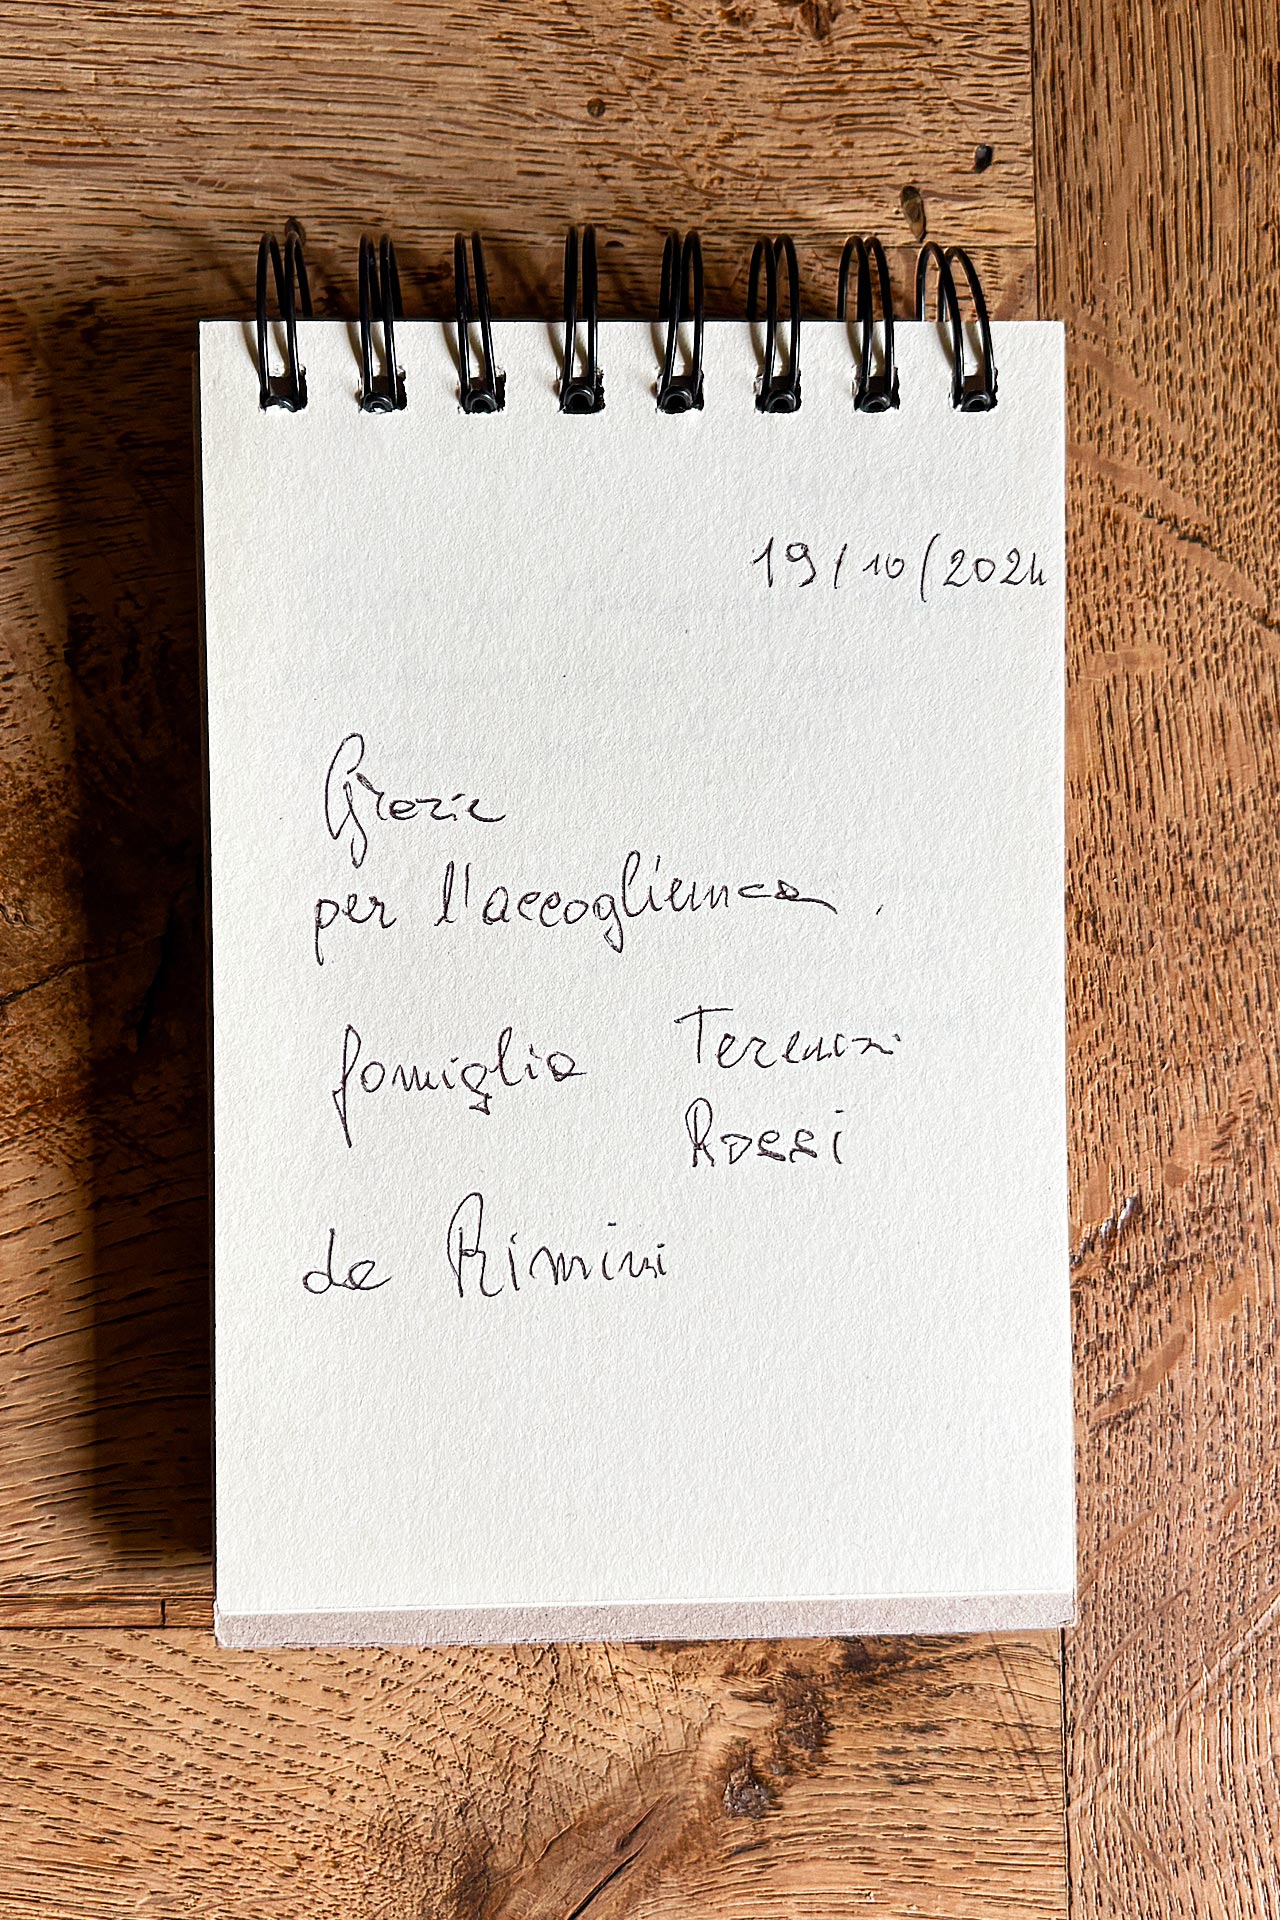 19/10/2024
Grazie
per l'accoglienza.
famiglia Terenzi
Rossi
da Rimini